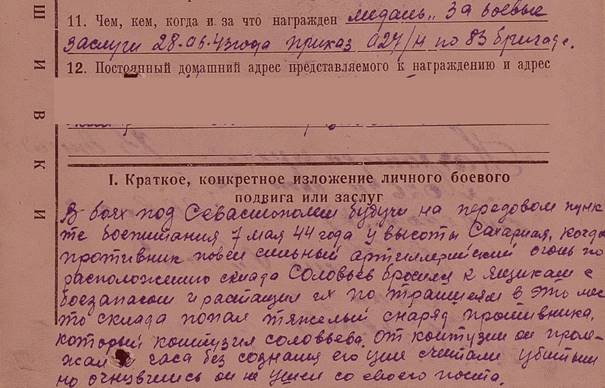 11. Чем, кем, когда и за что награжден медаль „За боевые
заслуги 28-06-43 года приказ 027/н по 83 бригаде.
12. Постоянный домашний адрес представляемого к награждению и адрес
I. Краткое, конкретное изложение личного боевого
подвига или заслуг
В боях под Севастополем будучи на передовом пунк-
те боепитания 7 мая 44 года у высоты Сахарная, когда
противник повел сильный артиллерийский огонь по
расположению склада Соловьев бросился к ящикам с
боезапасом и растащил их по траншеям в это мес-
то склада попал тяжелый снаряд противника,
который контузил Соловьева. От контузии он проле-
жал часа без сознания его уже считали убитым
но очнувшись он не ушел со своего поста.
Ш
И
В
К
И